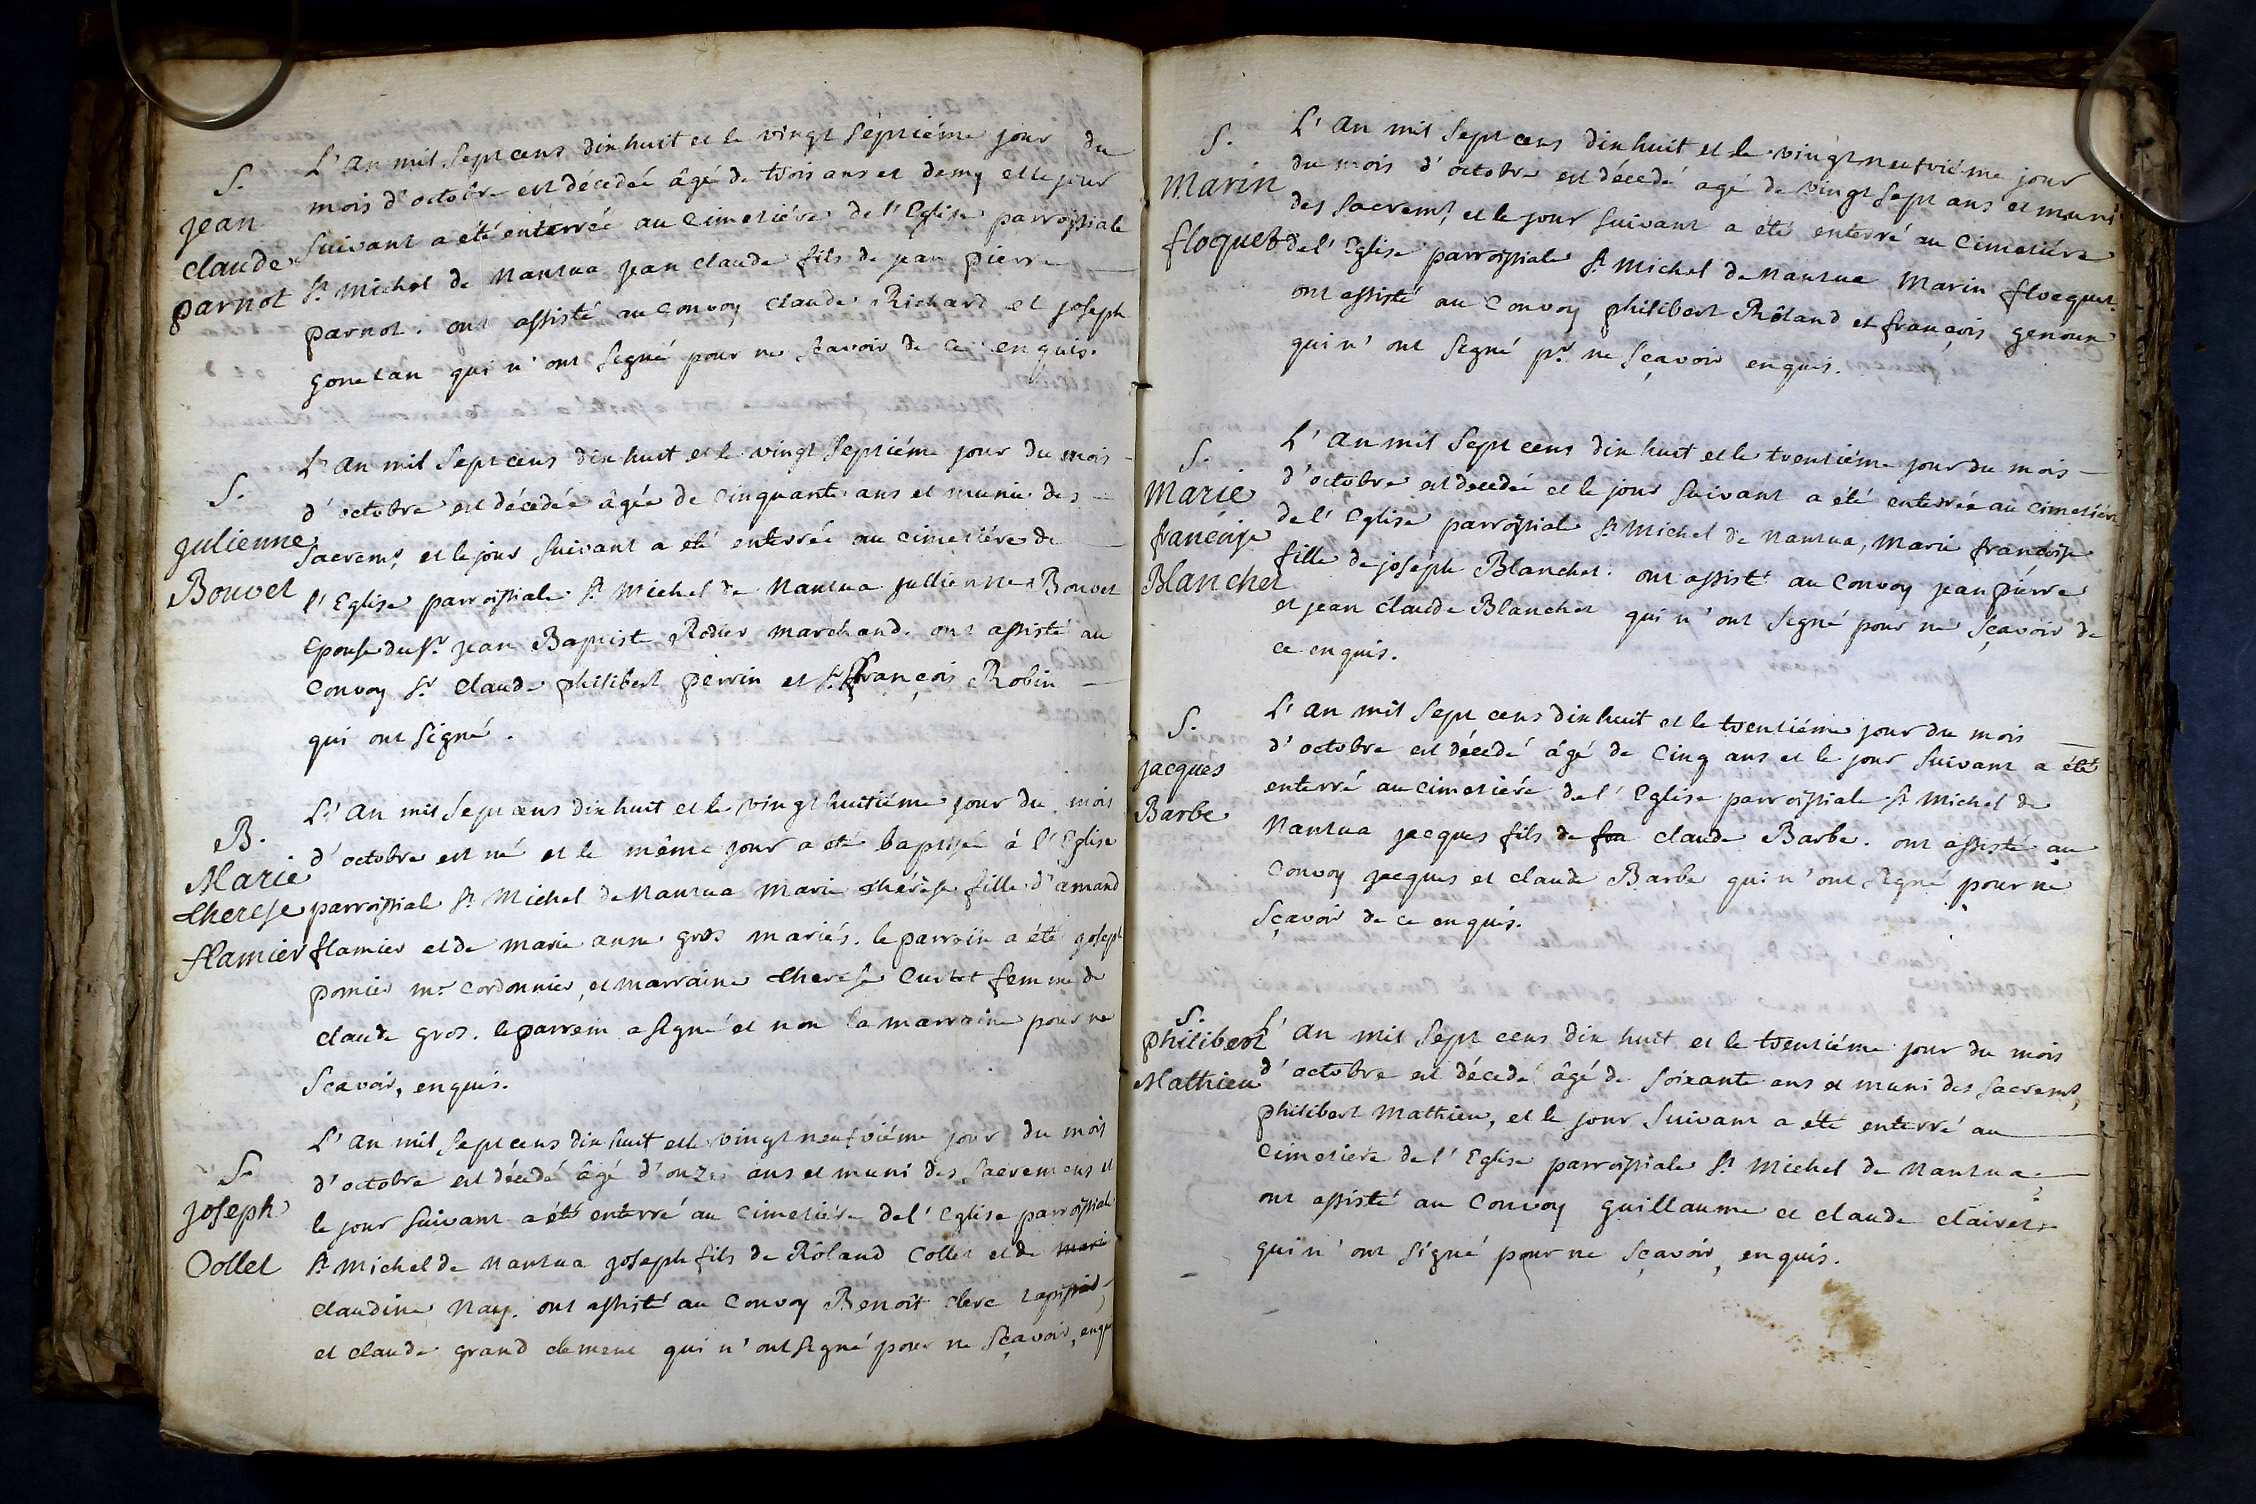 S.
jean
claude
parnot
L'an mil sept cens dix huit et le vingt séptiéme jour du
mois d'octobre est décedeé âgé de trois ans et demy et le jour
suivant a été enterrée au cimetiére de l'Eglise parroissiale
St Michel de Nantua jean claude fils de jean pierre
parnot. ont assisté au Convoy claude Richard et joseph
gonetan qui n'ont signé pour ne scavoir de ce enquis.
S.
julienne
Bouvet
L'an mil sept cens dix huit et le vingt septiéme jour du mois
d'octobre est décedée âgée de cinquante ans et munie des
sacremts et le jour suivant a eté enterrée au cimetiére de
l'Eglise parroissiale St Michel de Nantua jullienne Bouvet
Epouse du Sr jean Baptiste Rodier marchand. ont assisté au
Convoy Sr claude philibert perrin et Sr françois Robin
qui ont signé.
B.
Marie
therese
flamier
L'an mil sept cens dix huit et le vingt huitiéme jour du mois
d'octobre est né et le même jour a été baptisée à l'Eglise
parroissiale St Michel de Nantua Marie thérèse fille d'amand
flamier et de marie anne gros mariés. le parrein a été joseph
pomier me cordonnier, et marraine therese Curtet femme de
claude gros. le parrein a signé et non la marraine pour ne
scavoir, enquis.
S.
joseph
Collet
L'an mil sept cens dix huit et le vingt neufviéme jour du mois
d'octobre est décedé âgé d'onze ans et muni des sacremens et
le jour suivant a été enterré au cimetiére de l'Eglise parroissiale
St Michel de Nantua joseph fils de Roland Collet et de marie
claudine Nay. ont assisté au Convoy Benoit clerc
et claude grand clement qui n'ont signé pour ne sçavoir, enquis
S.
Marin
floquet
L'an mil sept cens dix huit et le vingt neufviéme jour
du mois d'octobre est décedé agé de vingt sept ans et muni
des sacremts et le jour suivant a été enterré au cimetiére
de l'Eglise parroissiale St Michel de Nantua Marin flocquet.
ont assisté au Convoy philibert Roland et françois genoux
qui n'ont signé pr ne sçavoir enquis.
S.
Marie
françoise
Blanchet
L'an mil sept cens dix huit et le trentiéme jour du mois
d'octobre est decedeé et le jour suivant a été enterrée au cimetiére
de l'Eglise parroissiale St Michel de Nantua, Marie françoise
fille de joseph Blanchet. ont assisté au Convoy jean pierre
et jean claude Blanchet qui n'ont signé pour ne sçavoir de
ce enquis.
S.
jacques
Barbe
L'an mil sept cens dix huit et le trentiéme jour du mois
d'octobre est décedé âgé de cinq ans et le jour suivant a été
enterré au cimetiére de l'Eglise parroissiale St Michel de
Nantua jacques fils de feu claude Barbe. ont assisté au
Convoy jacques et claude Barbe qui n'ont signé pour ne
sçavoir de ce enquis.
S.
philibert
Mathieu
L'an mil sept cens dix huit et le trentiéme jour du mois
d'octobre est décedé âgé de soixante ans et muni des sacremts,
philibert Mathieu, et le jour suivant a été enterré au
cimetiére de l'Eglise parroissiale St Michel de Nantua.
ont assisté au Convoy guillaume et claude clairet
qui n'ont signé pour ne sçavoir, enquis.